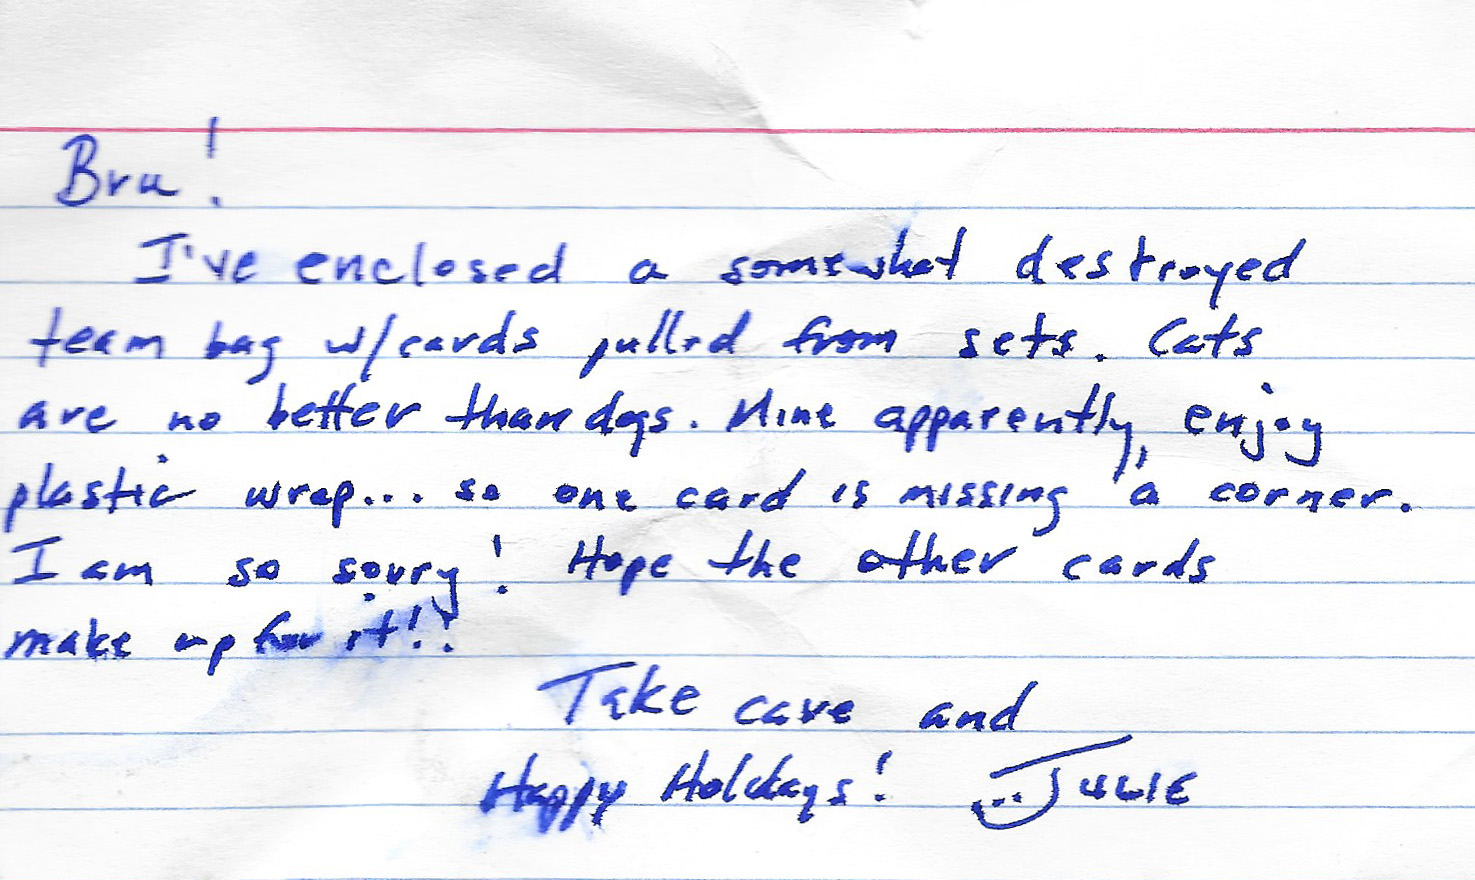 Bru!
I've enclosed a somewhat destroyed
team bag w/cards pulled from sets. Cats
are no better than dogs. Mine apparently, enjoy
plastic wrap... so one card is missing a corner.
I am so sorry! Hope the other cards
make up for it!!
Take care and
Happy Holidays! JULIE